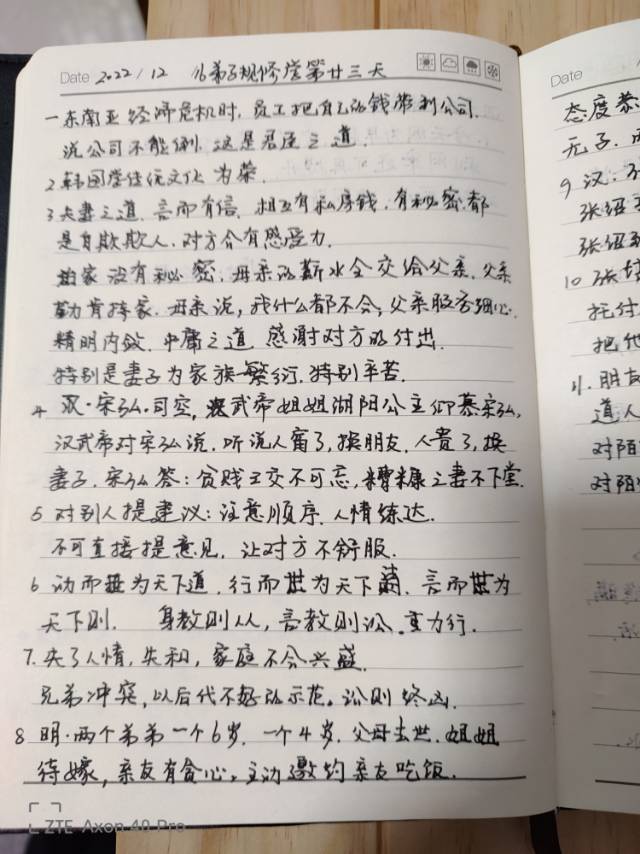 Date 2022/12 《弟子规修学第廿三天
一 东南亚经济危机时，员工把自己的钱带到公司.
说公司不能倒，这是君臣之道.
2 韩国学传统文化为荣.
3 夫妻之道，言而有信，相互有私房钱，有秘密都
是自欺欺人，对方会有感受力.
家没有秘密，母亲的薪水全交给父亲，父亲
勤肯持家，母亲说，我什么都不会，父亲很细心，
精明内敛，中庸之道，感谢对方的付出.
特别是妻子为家族繁衍，特别辛苦.
4 汉·宋弘·司空，汉武帝姐姐湖阳公主仰慕宋弘，
汉武帝对宋弘说，听说人富了，换朋友，人贵了，换
妻子，宋弘答：贫贱之交不可忘，糟糠之妻不下堂.
5 对别人提建议：注意顺序，人情练达.
不可直接提意见，让对方不舒服.
6 动而世为天下道，行而世为天下，言而世为
天下则. 身教则从，言教则讼. 重力行.
7. 失了人情，失和，家庭不会兴盛.
兄弟冲突，以后代不好的示范。讼则终凶.
8 明·两个弟弟一个6岁，一个4岁，父母去世，姐姐
待嫁，亲友有贪心，主动邀约亲友吃饭.
Date
态度恭
无子.
9 汉：
张绍
张绍
10 张
托付
把他
11. 朋友
道人
对陌
对陌
ZTE Axon 40 Pro